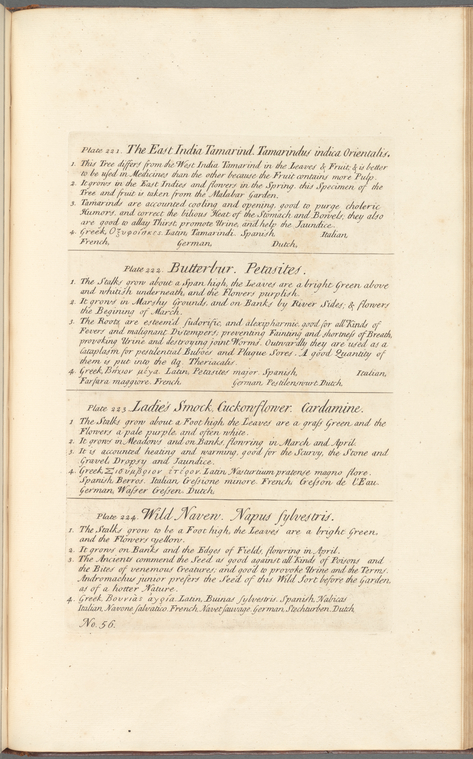 Plate 221. The East India Tamarind. Tamarindus indica Orientalis.
1. This Tree differs from the West India Tamarind in the Leaves & Fruit, & is better
to be used in Medicines than the other because the Fruit contains more Pulp.
2. It grows in the East Indies and flowers in the Spring. this Specimen of the
Tree and fruit is taken from the Malabar Garden.
3. Tamarinds are accounted cooling and opening, good to purge choleric
Humors, and correct the bilious Heat of the Stomach and Bowels; they also
are good to allay Thirst, promote Urine, and help the Jaundice.
4. Greek, Latin, Tamarindi. Spanish, Italian,
French, German, Dutch,
Plate 222. Butterbur. Petasites.
1. The Stalks grow about a Span high, the Leaves are a bright Green above
and whitish underneath, and the Flowers purplish.
2. It grows in Marshy Grounds, and on Banks by River Sides; & flowers
the Begining of March.
3. The Roots are esteem'd sudorific, and alexipharmic, good for all Kinds of
Fevers and malignant Distempers, preventing Fainting and shortness of Breath,
provoking Urine and destroying joint Worms. Outwardly they are used as a
Cataplasm for pestilential Buboes and Plague Sores. A good Quantity of
them is put into the Aq. Theriacalis.
4. Greek, Latin, Petasites major. Spanish, Italian,
Farfara maggiore. French, German, Pestilenswurt. Dutch,
Plate 223. Ladie's Smock, Cuckowflower. Cardamine.
1. The Stalks grow about a Foot high, the Leaves are a grass Green and the
Flowers a pale purple, and often white.
2. It grows in Meadows and on Banks flowring in March and April.
3. It is accounted heating and warming, good for the Scurvy, the Stone and
Gravel, Dropsy and Jaundice.
4. Greek, Σισυμβριον ετερον. Latin, Nasturtium pratense magno flore.
Spanish, Berros. Italian, Cresione minore. French, Cresson de L'Eau.
German, Wasser Cressen. Dutch,
Plate 224. Wild Naven. Napus sylvestris.
1. The Stalks grow to be a Foot high, the Leaves are a bright Green,
and the Flowers yellow.
2. It grows on Banks and the Edges of Fields, flowring in April.
3. The Ancients commend the Seed as good against all Kinds of Poisons and
the Bites of venemous Creatures; and good to provoke Urine and the Terms.
Andromachus junior prefers the Seed of this Wild Sort before the Garden,
as of a hotter Nature.
4. Greek, Βουνιας αγρια. Latin, Bunias sylvestris. Spanish, Nabicas
Italian, Navone salvatico. French, Navet sauvage. German, Stechturben. Dutch,
No. 56.